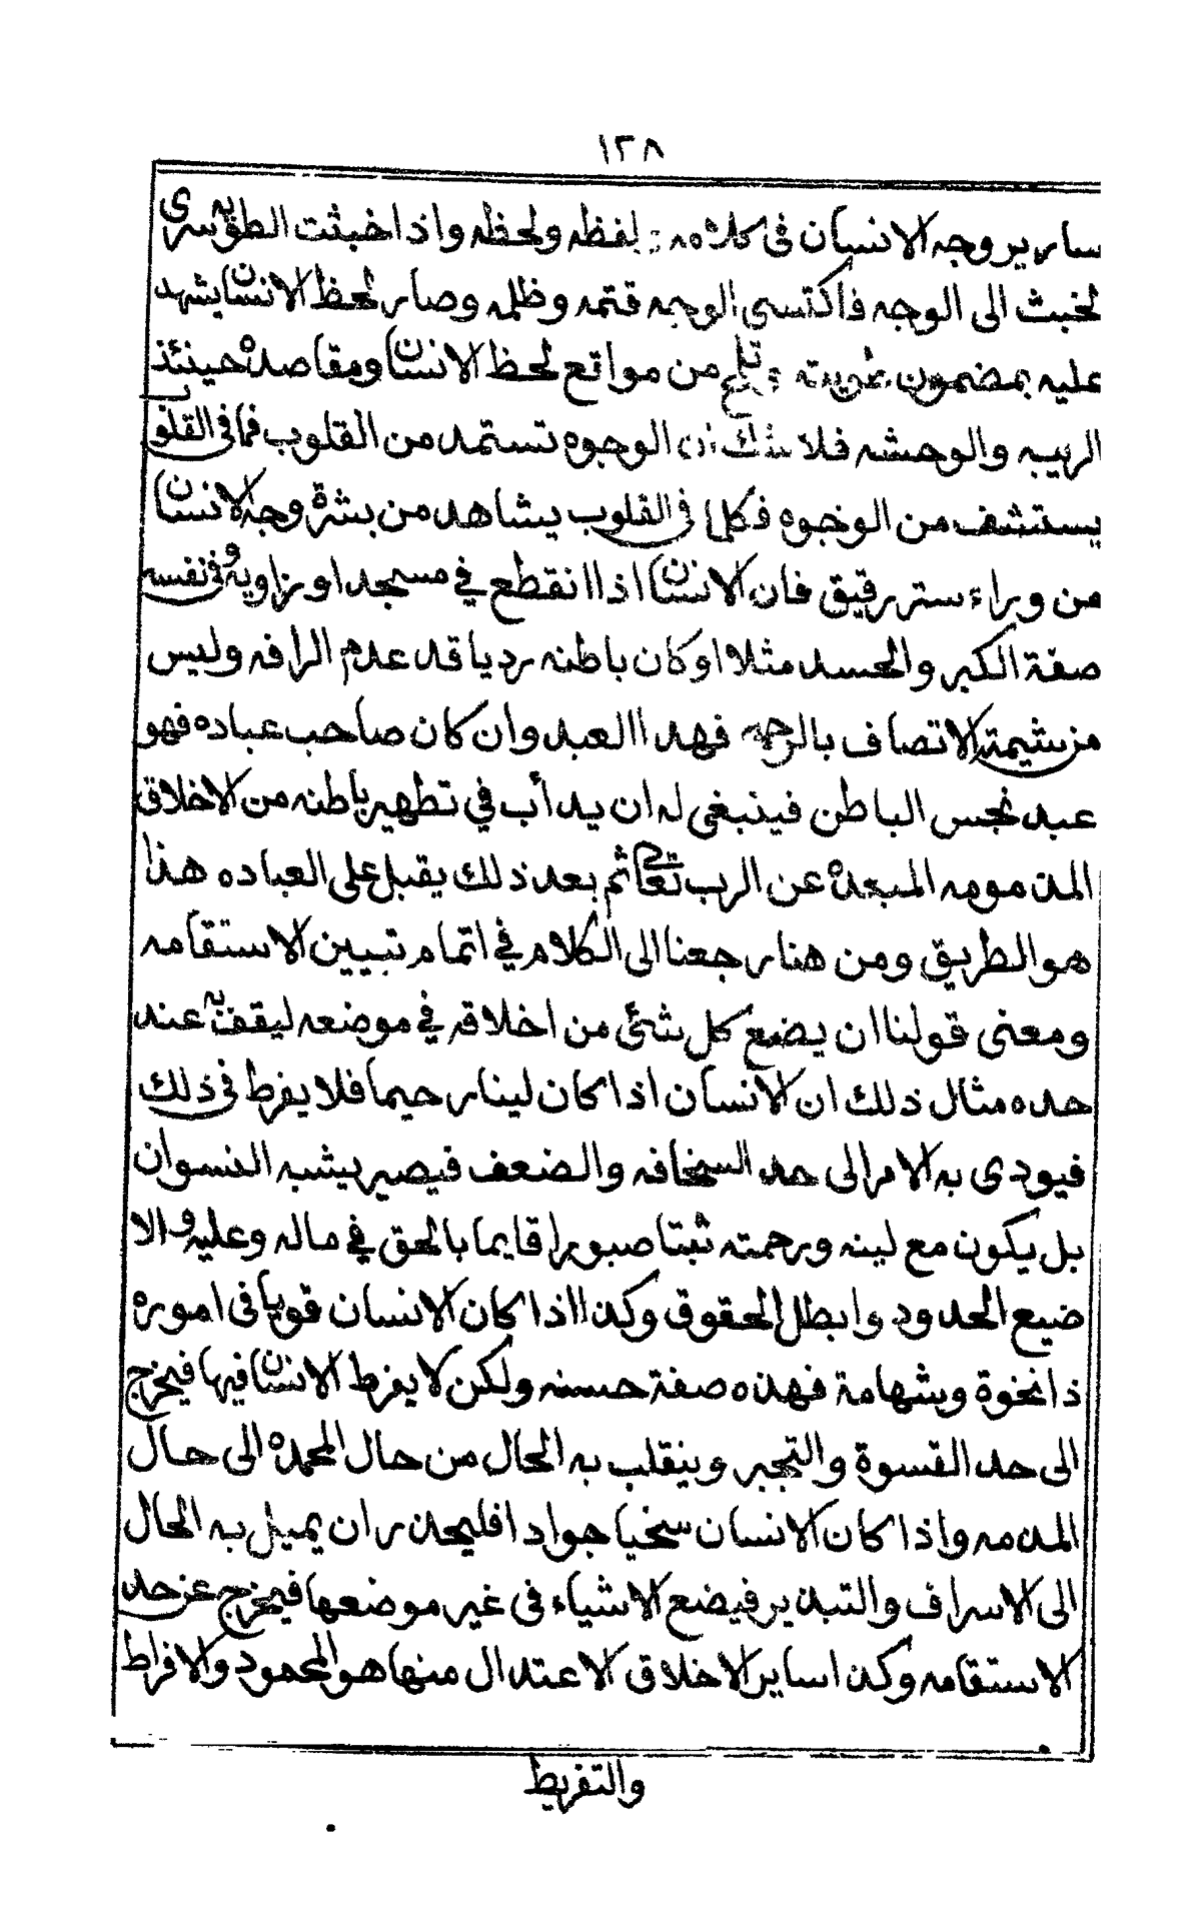 ١٣٨
ساير وجه الانسان فى كلامه لفظه ولحظه واذا خبثت الطويه سرى
الخبث الى الوجه فاكتسى الوجه قتمه وظلمه وصار لحظ الانسان يشهد
عليه بمضمون من مواقع لحظ الانسان ومقاصده حينئذ
الريبه والوحشه فلا شك ان الوجوه تستمد من القلوب فما فى القلوب
يستشف من الوجوه فكلما فى القلوب يشاهد من بشرة وجه الانسان
من وراء ستر رقيق فان الانسان اذا انقطع في مسجد او زاوية وفى نفسه
صفة الكبر والحسد مثلا او كان باطنه رديا قد عدم الرافه وليس
من شيمته الاتصاف بالرحمه فهدا العبد وان كان صاحب عباده فهو
عبد نجس الباطن فينبغى له ان يدأب في تطهير باطنه من الاخلاق
المدمومه المبعده عن الرب تعالى ثم بعد ذلك يقبل على العباده هذا
هو الطريق ومن هنا رجعنا الى الكلام في اتمام تبيين الاستقامه
ومعنى قولنا ان يضع كل شئ من اخلاقه في موضعه ليقف به عند
حده مثال ذلك ان الانسان اذا كان لينا رحيما فلا يفرط فى ذلك
فيودى به الامر الى حد السخافه والضعف فيصير يشبه النسوان
بل يكون مع لينه ورحمته ثبتا صبورا قايما بالحق في ماله وعليه والا
ضيع الحدود وابطل الحقوق وكدا اذا كان الانسان قويا فى اموره
ذا نخوة وشهامة فهذه صفة حسنه ولكن لا يفرط الانسان فيها فيخرج
الى حد القسوة والتجبر وينقلب به الحال من حال المحمده الى حال
المدمه واذا كان الانسان سخيا جوادا فليحدر ان يميل به الحال
الى الاسراف والتبدير فيضع الاشياء فى غير موضعها فيخرج عن حد
الاستقامه وكدا ساير الاخلاق الاعتدال منها هو المحمود والافراط
والتفريط